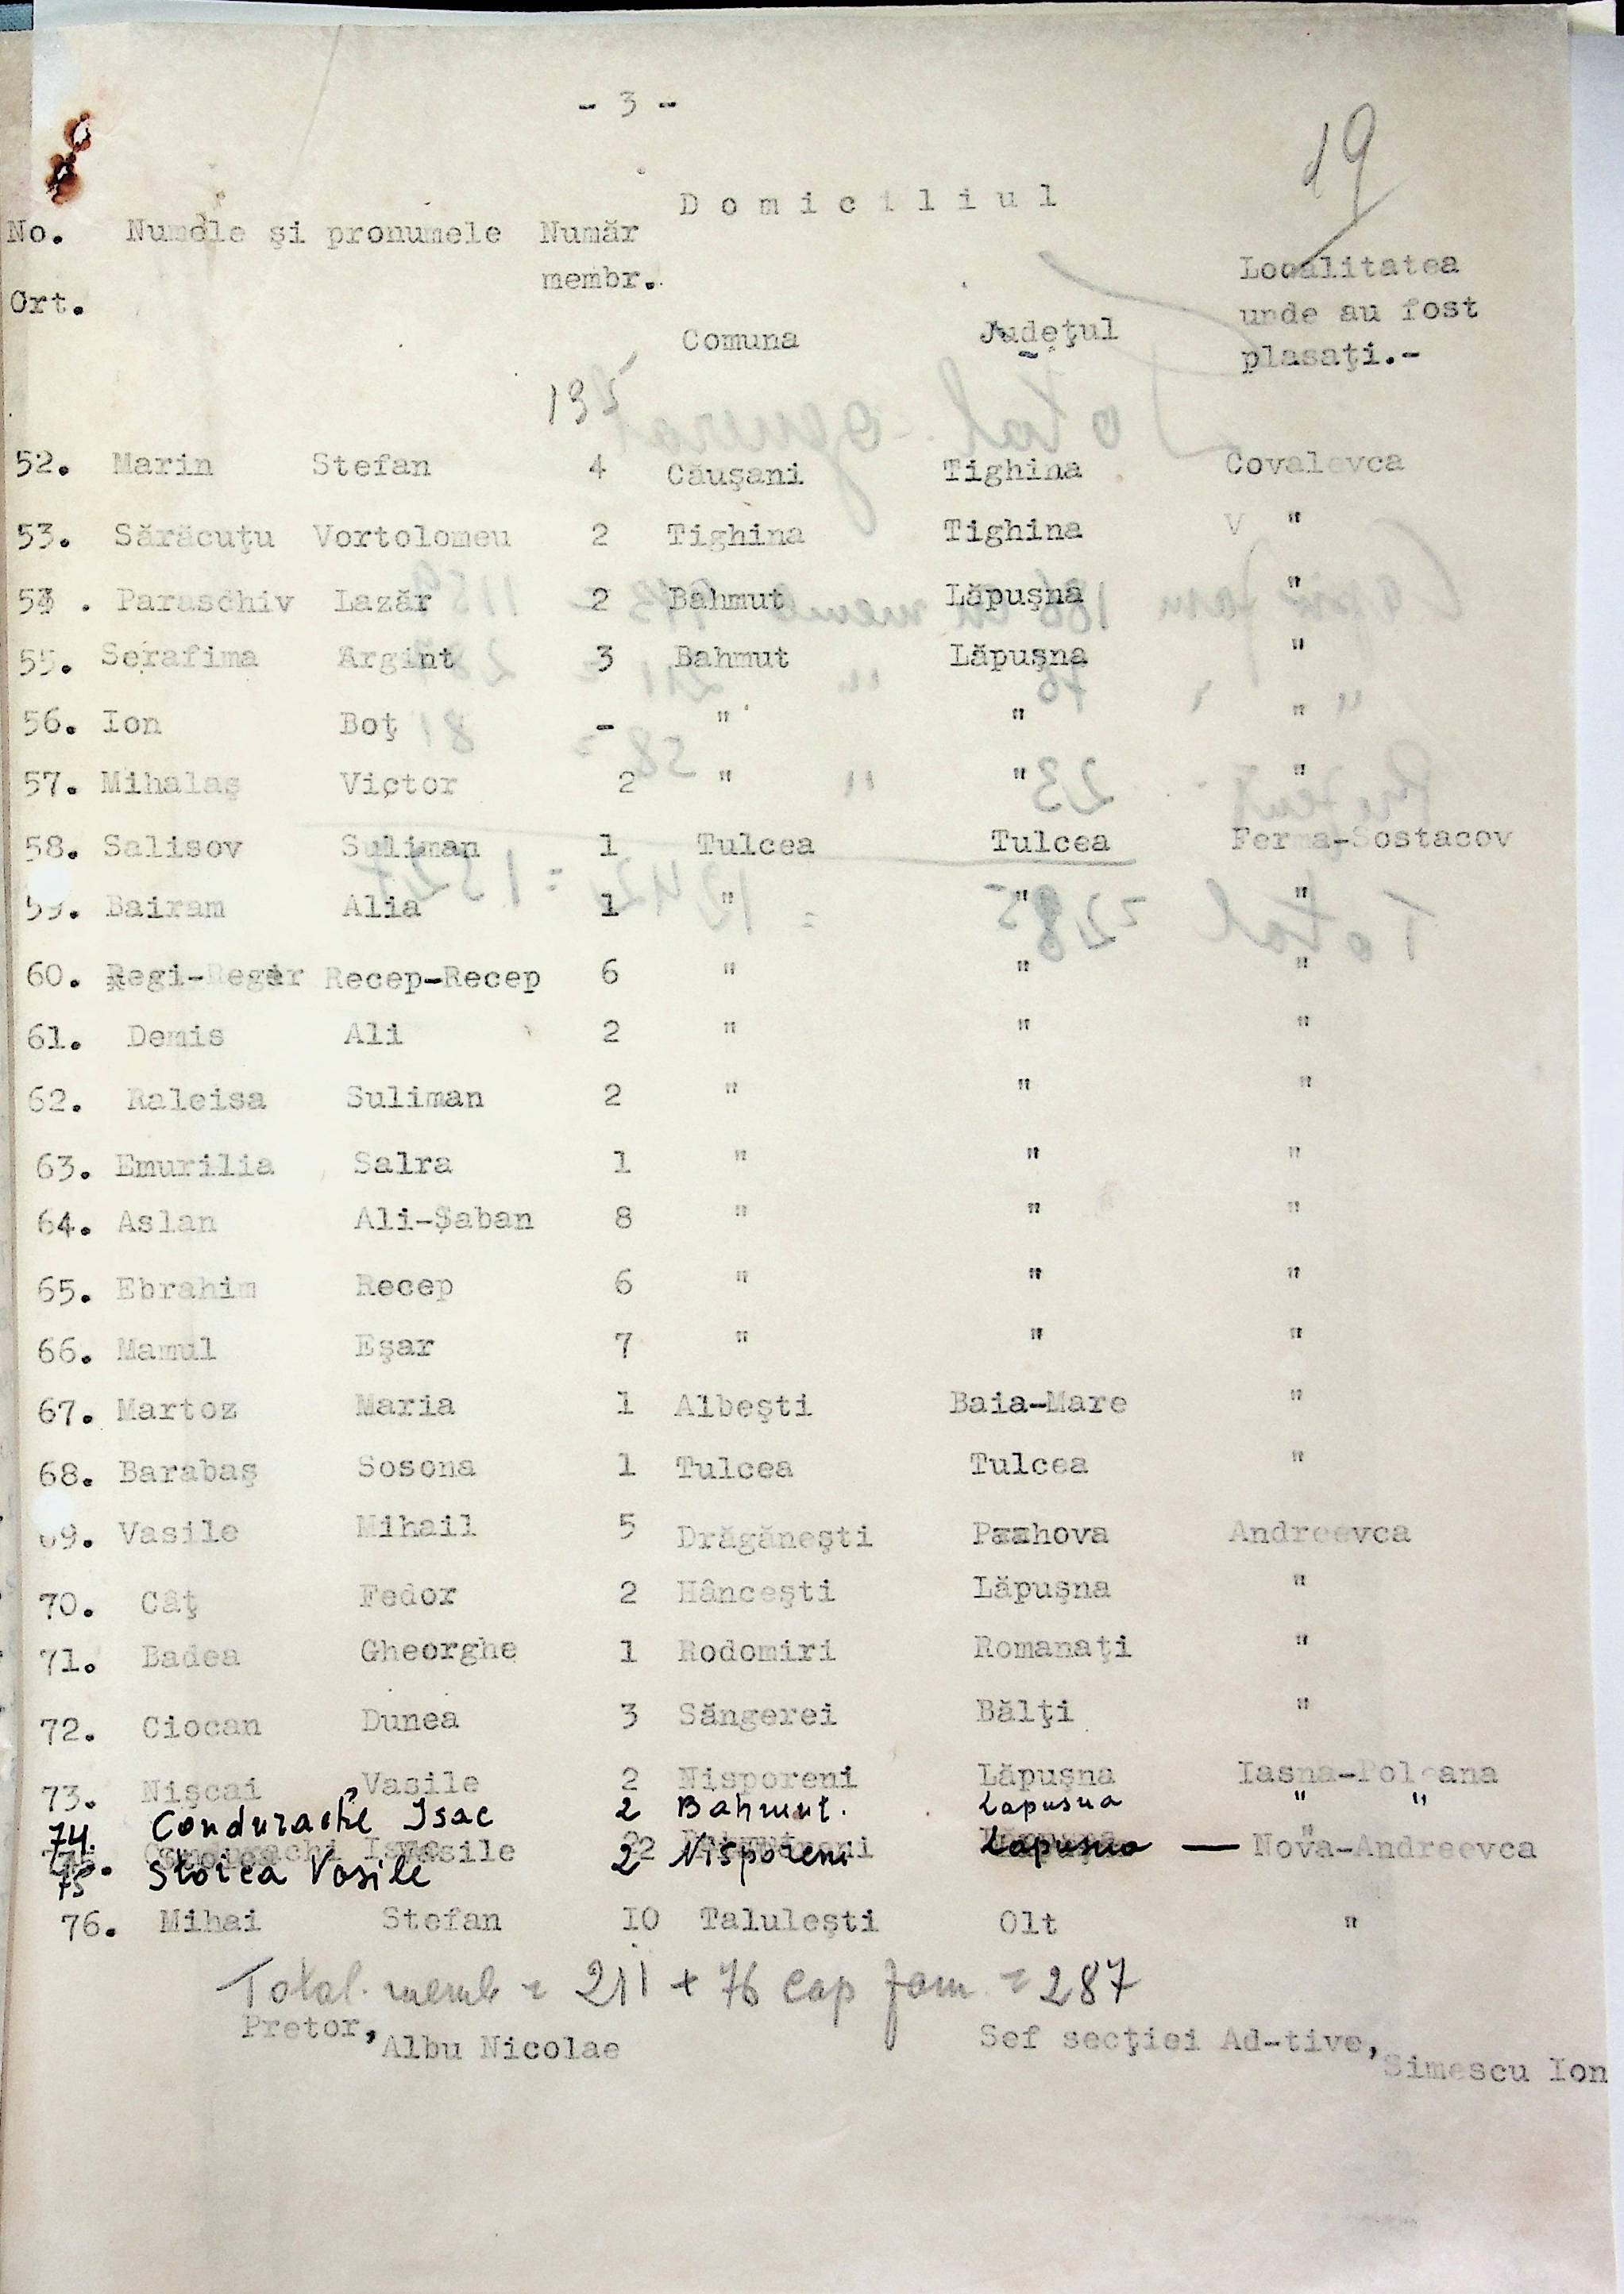 - 3 -
19
D o m i c i l i u l
No. Numele şi pronumele Număr
membr.
Localitatea
Crt.
unde au fost
Comuna Judeţul
plasaţi.-
135
52. Marin Stefan 4 Căuşani Tighina Covalevca
53. Sărăcuţu Vortolomeu 2 Tighina Tighina V "
54. Paraschiv Lazăr 2 Bahmut Lăpuşna "
55. Serafima Argint 3 Bahmut Lăpuşna "
56. Ion Boţ - " " "
57. Mihalaş Victor 2 " " "
58. Salisov Suliman 1 Tulcea Tulcea Ferma-Sostacov
59. Bairam Alia 1 " " "
60. Regi-Regar Recep-Recep 6 " " "
61. Demis Ali 2 " " "
62. Raleisa Suliman 2 " " "
63. Emurilia Salra 1 " " "
64. Aslan Ali-Şaban 8 " " "
65. Ebrahim Recep 6 " " "
66. Mamul Eşar 7 " " "
67. Martoz Maria 1 Albeşti Baia-Mare "
68. Barabaş Sosona 1 Tulcea Tulcea "
69. Vasile Mihail 5 Drăgăneşti Prahova Andreevca
70. Câţ Fedor 2 Hânceşti Lăpuşna "
71. Badea Gheorghe 1 Rodomiri Romanaţi "
72. Ciocan Dunea 3 Săngerei Bălţi "
73. Nişcai Vasile 2 Nisporeni Lăpuşna Iasna-Poleana
74. Condurache Isac 2 Bahmut. Lapusna " "
75 Stoica Vasile 2 Nisporeni Lapusna — Nova-Andreevca
76. Mihai Stefan 10 Taluleşti Olt "
Total memb = 211 + 76 cap fam = 287
Pretor, Albu Nicolae
Sef secţiei Ad-tive, Simescu Ion